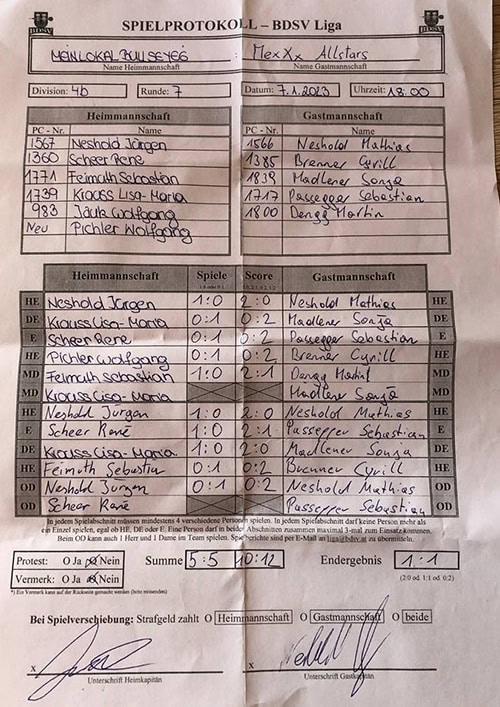 SPIELPROTOKOLL – BDSV Liga
BDSV
BDSV
MEINLOKAL BULLSEYE : MexXx Allstars
Name Heimmannschaft Name Gastmannschaft
Division: 4b Runde: 7 Datum: 7.1.2023 Uhrzeit: 18:00
Heimmannschaft Gastmannschaft
PC - Nr. Name PC - Nr. Name
1567 Neshold Jürgen 1566 Neshold Mathias
1360 Scheer Rene 1385 Brenner Cyrill
1771 Feimuth Sebastian 1839 Madlener Sonja
1739 Krauss Lisa-Maria 1717 Passegger Sebastian
983 Jauk Wolfgang 1800 Dengg Martin
Neu Pichler Wolfgang
Heimmannschaft Spiele Score Gastmannschaft
HE Neshold Jürgen 1:0 2:0 Neshold Mathias HE
DE Krauss Lisa-Maria 0:1 0:2 Madlener Sonja DE
E Scheer Rene 0:1 0:2 Passegger Sebastian E
HE Pichler Wolfgang 0:1 0:2 Brenner Cyrill HE
MD Feimuth Sebastian 1:0 2:1 Dengg Martin MD
MD Krauss Lisa-Maria Madlener Sonja MD
HE Neshold Jürgen 1:0 2:0 Neshold Mathias HE
E Scheer René 1:0 2:1 Passegger Sebastian E
DE Krauss Lisa-Maria 1:0 2:0 Madlener Sonja DE
HE Feimuth Sebastian 0:1 0:2 Brenner Cyrill HE
OD Neshold Jürgen 0:1 0:2 Neshold Mathias OD
OD Scheer René Passegger Sebastian OD
In jedem Spielabschnitt müssen mindestens 4 verschiedene Personen spielen. In jedem Spielabschnitt darf keine Person mehr als
ein Einzel spielen, egal ob HE, DE oder E. Eine Person darf in beiden Abschnitten zusammen maximal 3-mal zum Einsatz kommen.
Beim OD kann auch 1 Herr und 1 Dame im Team spielen. Spielberichte sind per E-Mail an liga@bdsv.at zu übermitteln.
Protest: O Ja O Nein Summe 5:5 10:12 Endergebnis 1:1
Vermerk: O Ja O Nein (2:0 od. 1:1 od. 0:2)
*) Ein Vermerk kann auf der Rückseite gemacht werden (bitte umseitig)
Bei Spielverschiebung: Strafgeld zahlt O Heimmannschaft O Gastmannschaft O beide
x x
Unterschrift Heimkapitän Unterschrift Gastkapitän